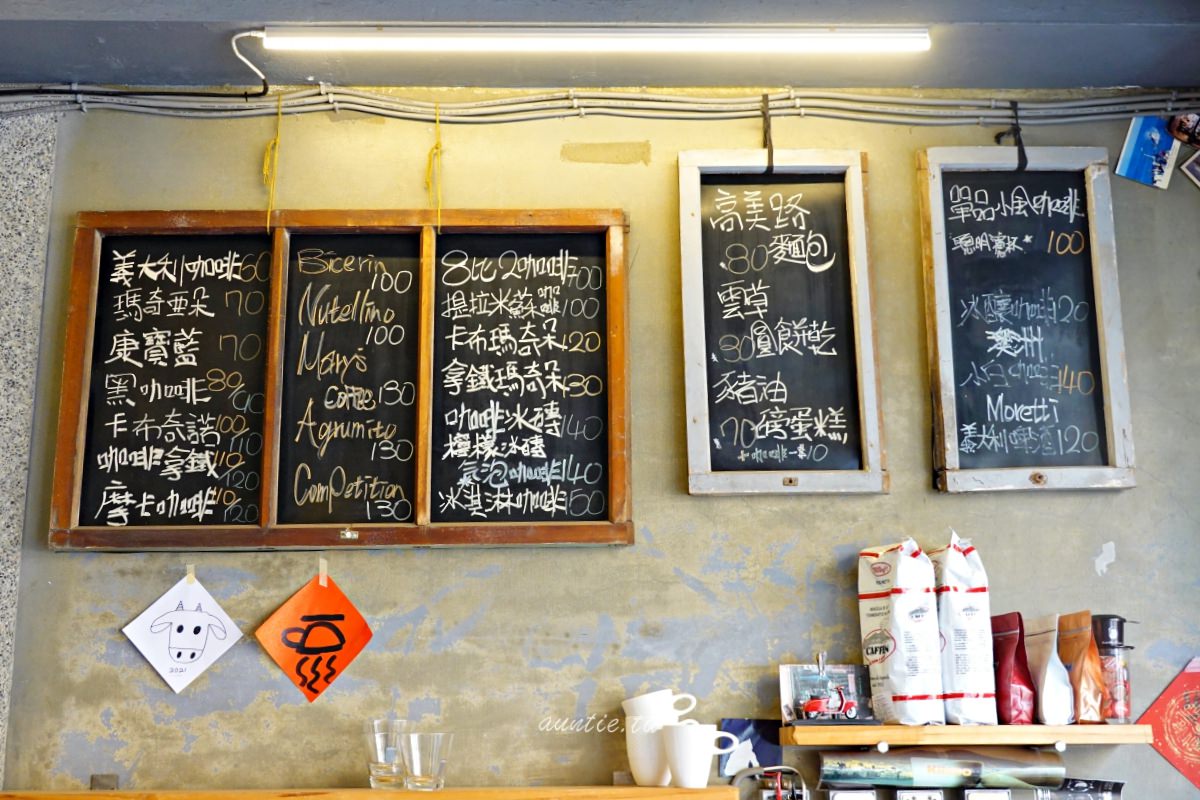 義大利咖啡60
瑪奇亞朵 70
康寶藍 70
黑咖啡80/90
卡布奇諾100/110
咖啡拿鐵110/120
摩卡咖啡110/120
Bicerin
100
Nutellino
100
Mary's
coffee 130
Agrumito
130
Competition
130
8比2咖啡100
提拉米蘇咖啡100
卡布瑪奇朵120
拿鐵瑪奇朵130
咖啡冰磚140
檸檬冰磚
氣泡咖啡140
冰淇淋咖啡150
高美路
80麵包
雲草
30圓餅乾
豬油
70磅蛋糕
單品小風咖啡
聰明濾杯 100
冰釀咖啡120
澳洲
小白咖啡140
Moretti
義大利啤酒120
2021
CAFFIN
auntie.tw